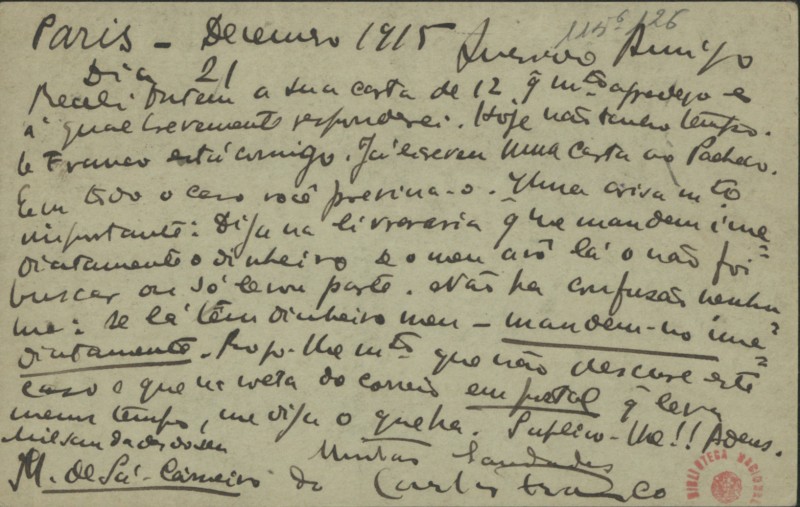 115⁶/26
Paris – Dezembro 1915
Dia 21
Querido Amigo
Recebi ontem a sua carta de 12 q̃ mto agradeço e
á qual brevemente responderei. Hoje não tenho tempo.
O Franco está comigo. Já escreveu uma carta ao Pacheco.
Em todo o caso você previna-o. Uma coisa mto
importante: Diga na livraria q̃ me mandem ime=
diatamente o dinheiro se o meu avô lá o não foi
buscar ou só levou parte. Não ha confusão nenhu
ma: se lá têm dinheiro meu – mandem-no ime=
diatamente. Rogo-lhe mto que não descure este
caso e que na volta do correio em postal q̃ leva
menos tempo, me diga o que ha. Suplico-lhe!! Adeus.
Mil saudades do seu
M. de Sá-Carneiro
Muitas Saudades
do Carlos Franco
BIBLIOTECA NACIONAL